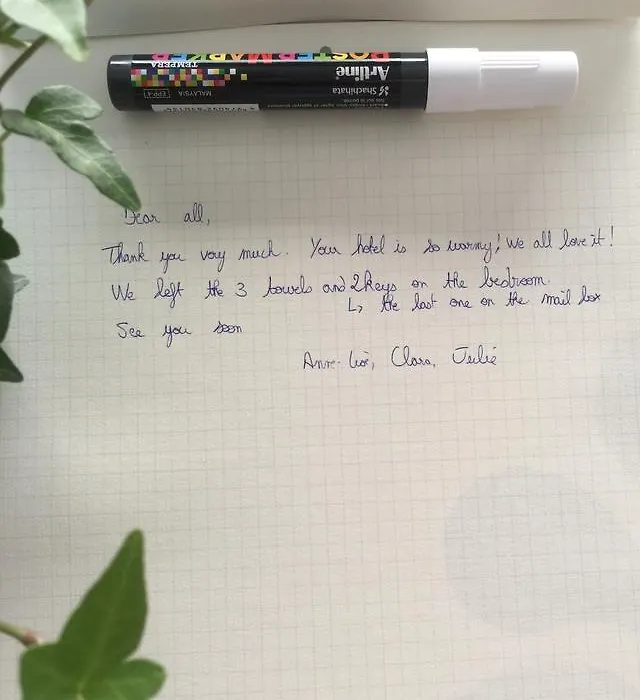 POSTER MARKER
TEMPERA
Artline
Shachihata
MALAYSIA
EPP-4
Dear all,
Thank you very much. Your hotel is so warmy! We all love it!
We left the 3 towels and 2 keys on the bedroom.
↳ the last one on the mail box
See you soon
Clara, Julie